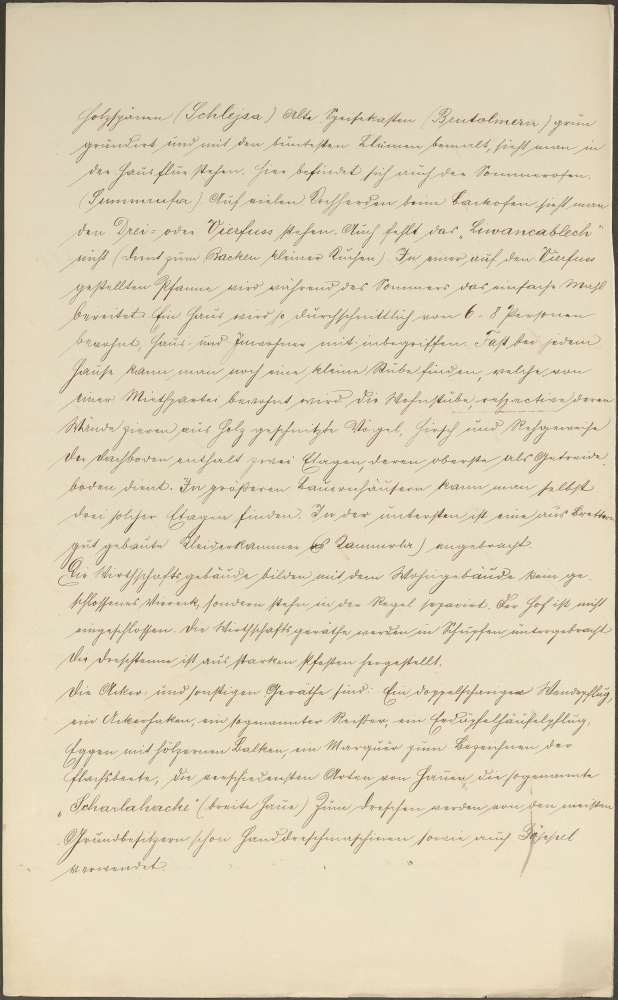 Holzspänen (Schleissa) Alte Speisekasten (Brutolmern) grün
grundirt und mit den buntesten Blumen bemalt, sieht man in
der Hausflur stehen. Hier befindet sich auch der Sommerofen.
Auf vielen Kochherden beim Backofen sieht man
den Drei= oder Vierfuss stehen. Auch fehlt das „Liwancablech"
nicht (dient zum Backen kleiner Kuchen). In einer auf den Vierfuss
gestellten Pfanne wird während des Sommers das einfache Mahl
bereitet. Ein Haus wird so durchschnittlich von 6-8 Personen
bewohnt, Haus- und Inwohner mit inbegriffen. Fast bei jedem
Hause kann man noch eine kleine Stube finden, welche von
einer Miethpartei bewohnt wird. Die Wohnstube, respective deren
Wände zieren aus Holz geschnitzte Vögel, Hirsch und Rehgeweihe
Der Dachboden enthält zwei Etagen, deren oberste als Getreide-
boden dient. In größeren Bauernhäusern kann man selbst
drei solcher Etagen finden. In der untersten ist eine aus Brettern
gut gebaute Kleiderkammer angebracht.
Die Wirthschaftsgebäude bilden mit dem Wohngebäude kein ge-
schlossenes Viereck, sondern stehn in der Regel separirt. Der Hof ist nicht
eingeschlossen. Die Wirthschaftsgeräthe werden in Schupfen untergebracht
Die Dreschtenne ist aus starken Pfosten hergestellt.
Die Acker- und sonstigen Geräthe sind: Ein doppelschariger Wendepflug,
ein Ackerhaken, ein sogenannter Reißer, ein Erdäpfelhäufelpflug,
Eggen mit hölzernen Balken, ein Marqueur zum Bezeichnen der
Flachsbeete, die verschiedensten Arten von Hauen, die sogenannte
„Scharlahacke" (breite Haue) Zum Dreschen werden von den meisten
Grundbesitzern schon Handdreschmaschinen sowie auch
verwendet